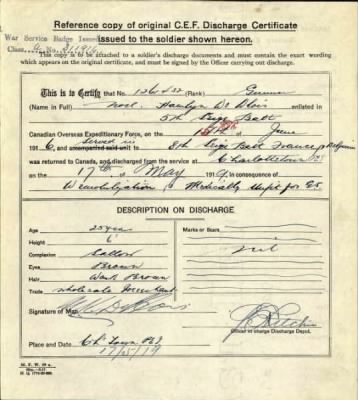 Reference copy of original C.E.F. Discharge Certificate
issued to the soldier shown hereon.
War Service Badge Issued
Class A No. 211916
This copy is to be attached to a soldier's discharge documents and must contain the exact wording
which appears on the original certificate, and must be signed by the Officer carrying out discharge.
This is to Certify that No. Gunner
(Name in Full) Noel De Blois enlisted in
Canadian Overseas Expeditionary Force, on the June
191 6, served in and accompanied said unit to 8th Siege Batt France & Belgium
was returned to Canada, and discharged from the service at Charlottetown
on the 17th of May 191 9, in consequence of
Demobilization, Medically Unfit for
DESCRIPTION ON DISCHARGE
Age 25 yrs
Height 6'
Complexion Sallow
Eyes Brown
Hair Dark Brown
Trade Wholesale Merchant
Marks or Scars
nil
Signature of Man
Officer in charge Discharge Depot.
Place and Date Ch Town PEI
17/5/19
M. F. W. 39 a.